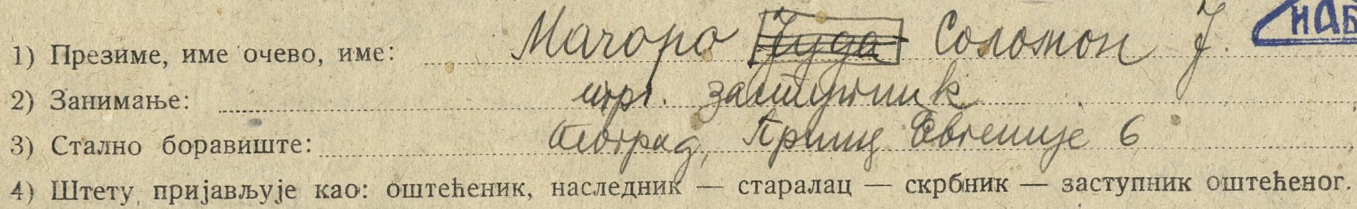 1) Презиме, име очево, име: Мачоро Јуда Соломон Ј.
2) Занимање: трг. заступник
3) Стално боравиште: Београд, Принц Евгеније 6
4) Штету пријављује као: оштећеник, наследник — старалац — скрбник — заступник оштећеног.